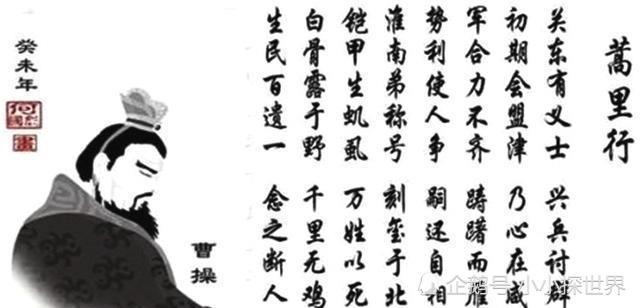 蒿里行
关东有义士 兴兵讨群
初期会盟津 乃心在咸
军合力不齐 踌躇而雁
势利使人争 嗣还自相
淮南弟称号 刻玺于北
铠甲生虮虱 万姓以死
白骨露于野 千里无鸡
生民百遗一 念之断人
曹操
癸未年
畫
企鹅号 小小探世界